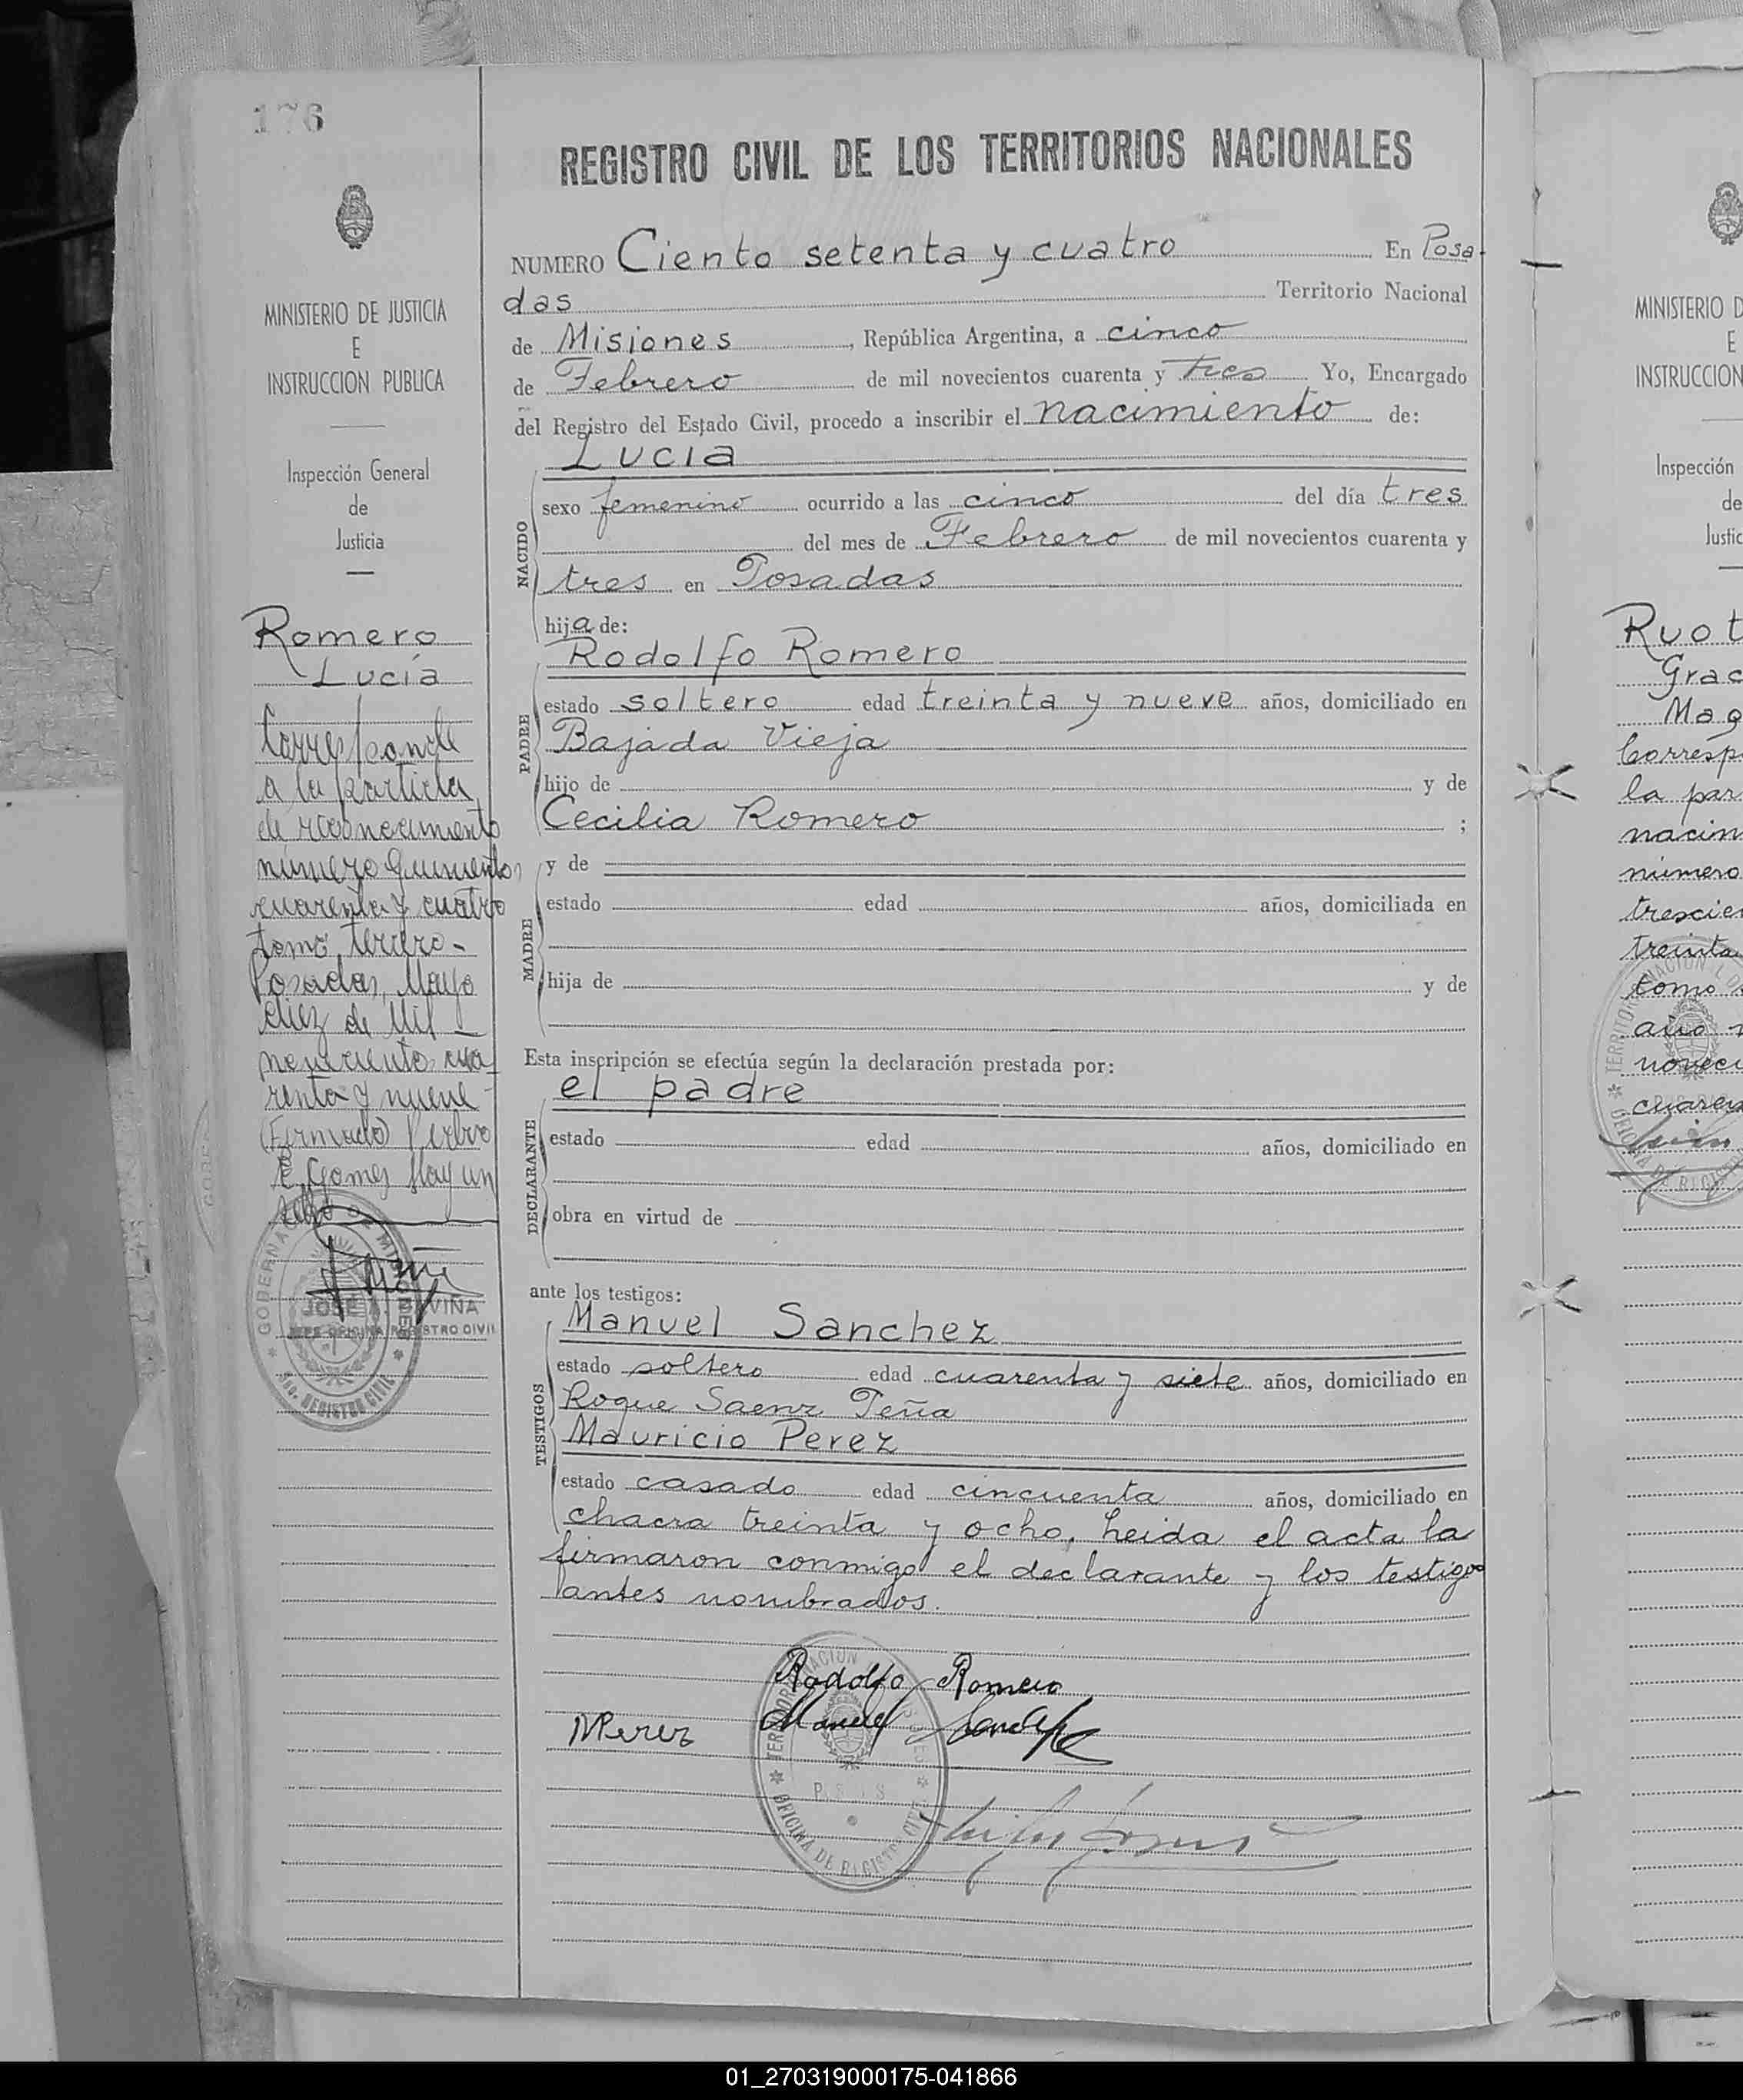 176
REGISTRO CIVIL DE LOS TERRITORIOS NACIONALES
NUMERO Ciento setenta y cuatro En Posa-
das Territorio Nacional
de Misiones, República Argentina, a cinco
de Febrero de mil novecientos cuarenta y tres Yo, Encargado
del Registro del Estado Civil, procedo a inscribir el nacimiento de:
Lucia
NACIDO
sexo femenino ocurrido a las cinco del día tres
del mes de Febrero de mil novecientos cuarenta y
tres en Posadas
hija de:
PADRE
Rodolfo Romero
estado soltero edad treinta y nueve años, domiciliado en
Bajada Vieja
hijo de y de
Cecilia Romero ;
MADRE
y de
estado edad años, domiciliada en
hija de y de
Esta inscripción se efectúa según la declaración prestada por:
DECLARANTE
el padre
estado edad años, domiciliado en
obra en virtud de
ante los testigos:
TESTIGOS
Manuel Sanchez
estado soltero edad cuarenta y siete años, domiciliado en
Roque Saenz Peña
Mauricio Perez
estado casado edad cincuenta años, domiciliado en
chacra treinta y ocho. Leida el acta la
firmaron conmigo el declarante y los testigos
antes nombrados.
Rodolfo Romero
MPerez Manuel Sanchez
OFICINA DE REGISTRO CIVIL
MINISTERIO DE JUSTICIA
E
INSTRUCCION PUBLICA
Inspección General
de
Justicia
Romero
Lucía
Corresponde
a la partida
de reconocimiento
número quinientos
cuarenta y cuatro
tomo tercero-
Posadas, Mayo
diez de Mil
novecientos cua
renta y nueve-
(Firmado) Pedro
E. Gomez Hay un
sello
JOSÉ A. BAVIÑA
JEFE OFICINA REGISTRO CIVIL
MINISTERIO D
E
INSTRUCCION
Inspección
de
Justic
Ruot
Grac
Mag
Corresp
la par
nacim
número
trescien
treinta
tomo
año
noveci
cuaren
01_270319000175-041866